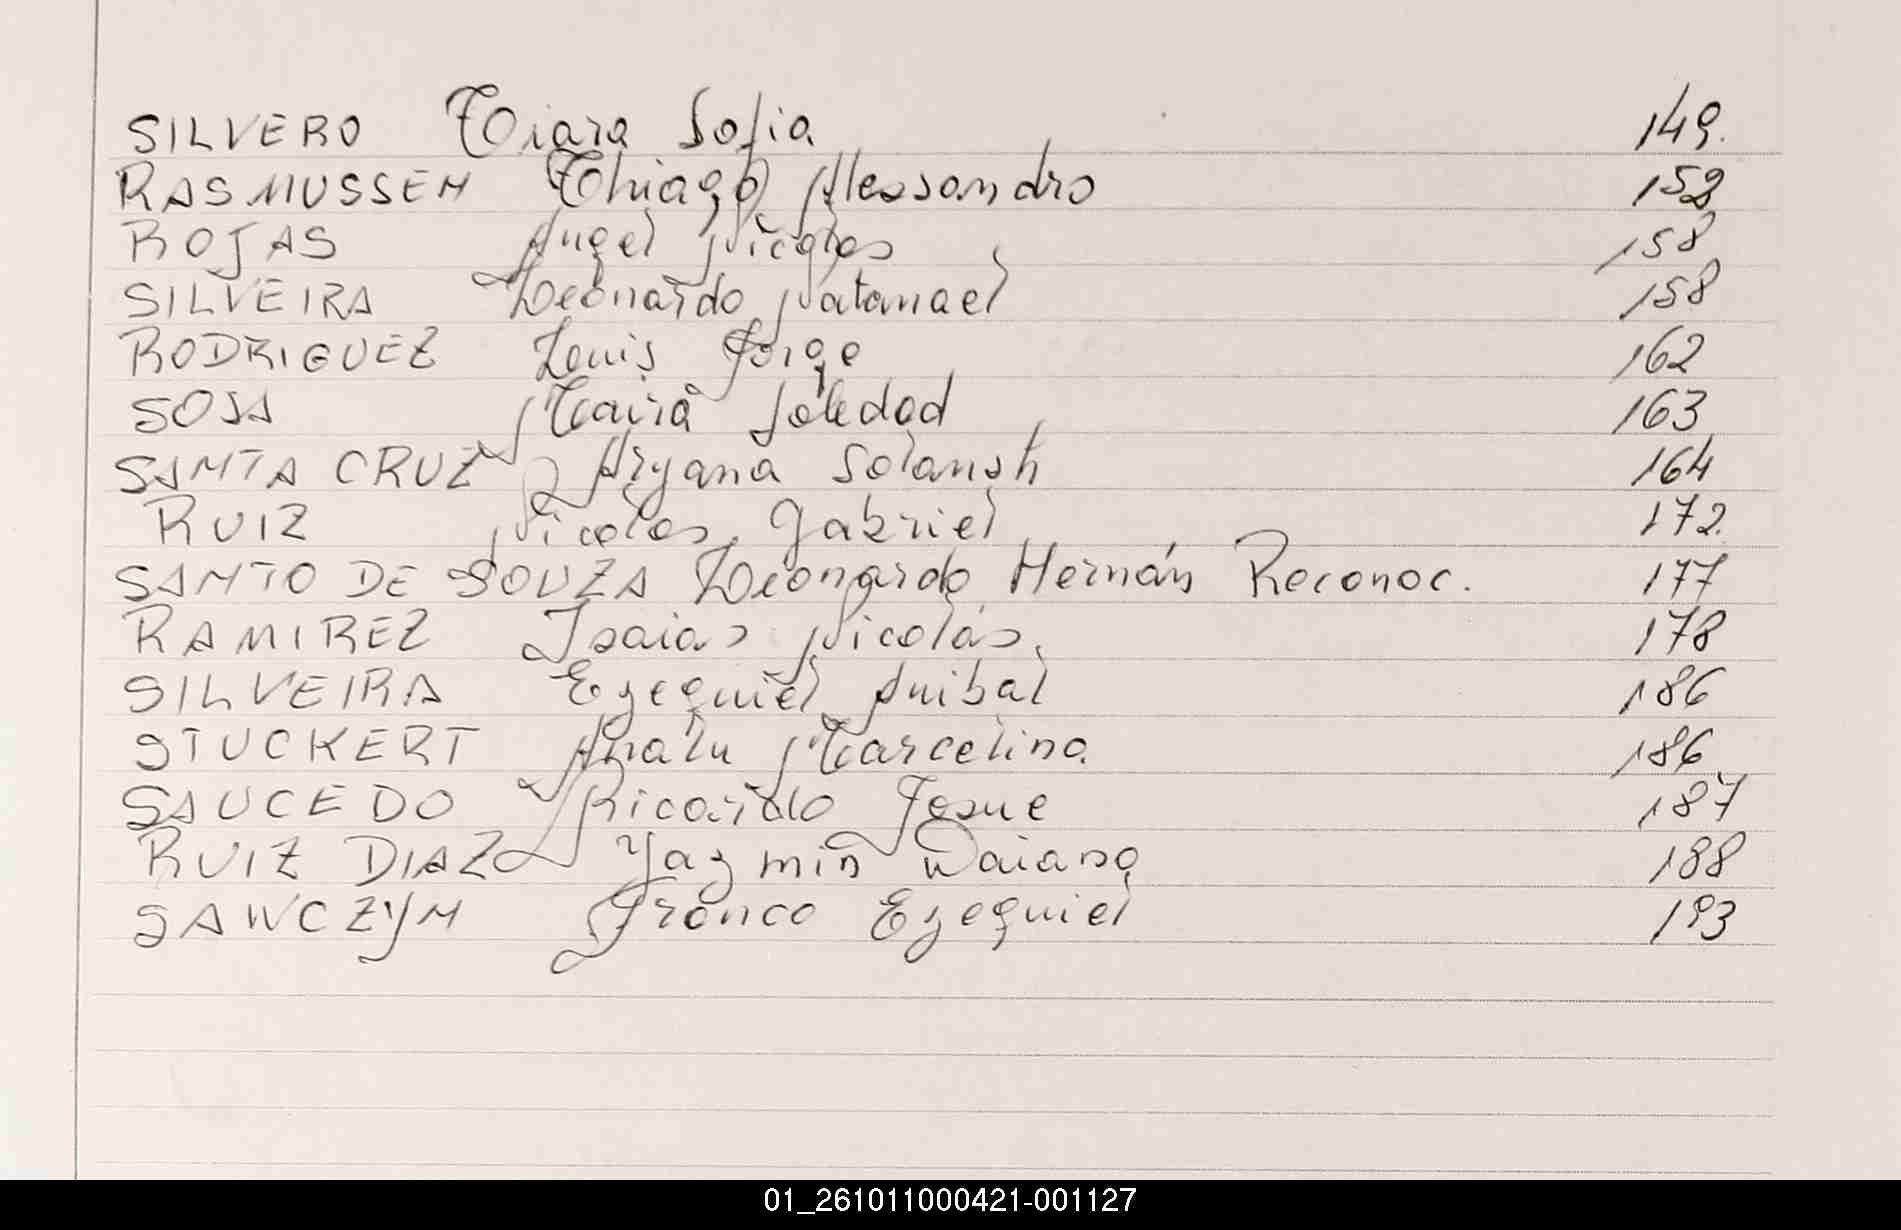 SILVERO Tiara Sofia 149.
RASMUSSEN Thiago Alessandro 152
ROJAS Angel Nicolas 158
SILVEIRA Leonardo Natanael 158
RODRIGUEZ Luis Jorge 162
SOSA Maira Soledad 163
SANTA CRUZ Aryana Solansh 164
RUIZ Nicolas Gabriel 172.
SANTO DE SOUZA Leonardo Hernán Reconoc. 177
RAMIREZ Isaias Nicolás. 178
SILVEIRA Ezequiel Anibal 186
STUCKERT Analu Marcelina 186
SAUCEDO Ricardo Josue 187
RUIZ DIAZ Yazmin Daiana 188
SAWCZYN Franco Ezequiel 193
01_261011000421-001127